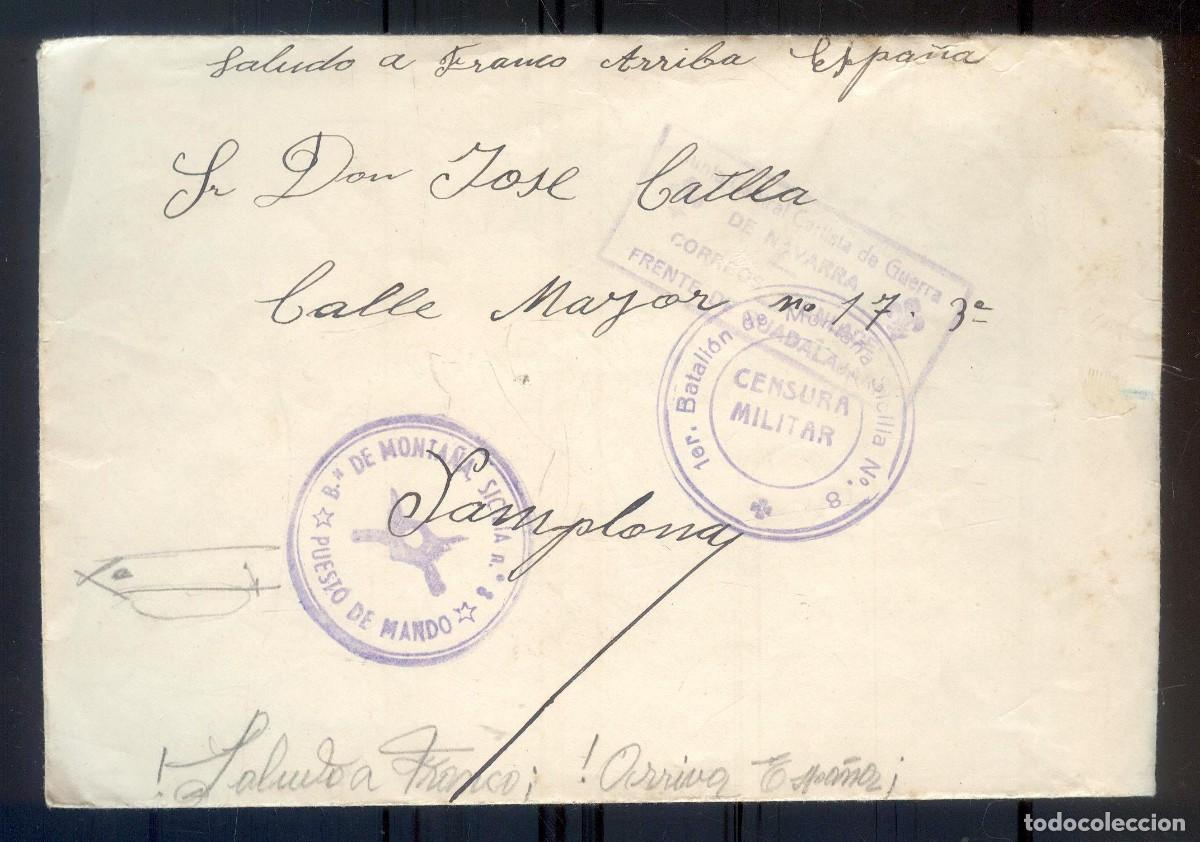 Saludo a Franco Arriba España
Sr Don Jose Catlla
Calle Mayor nº 17. 3º
Pamplona
Central Carlista de Guerra
DE NAVARRA
CORREOS
FRENTE DE GUADALAJARA
1er. Batallón de Montaña Sicilia Nº. 8
CENSURA
MILITAR
B.ⁿ DE MONTAÑA, SICILIA n.º 8
PUESTO DE MANDO
!Saludo a Franco¡ !Arriva España¡
todocoleccion